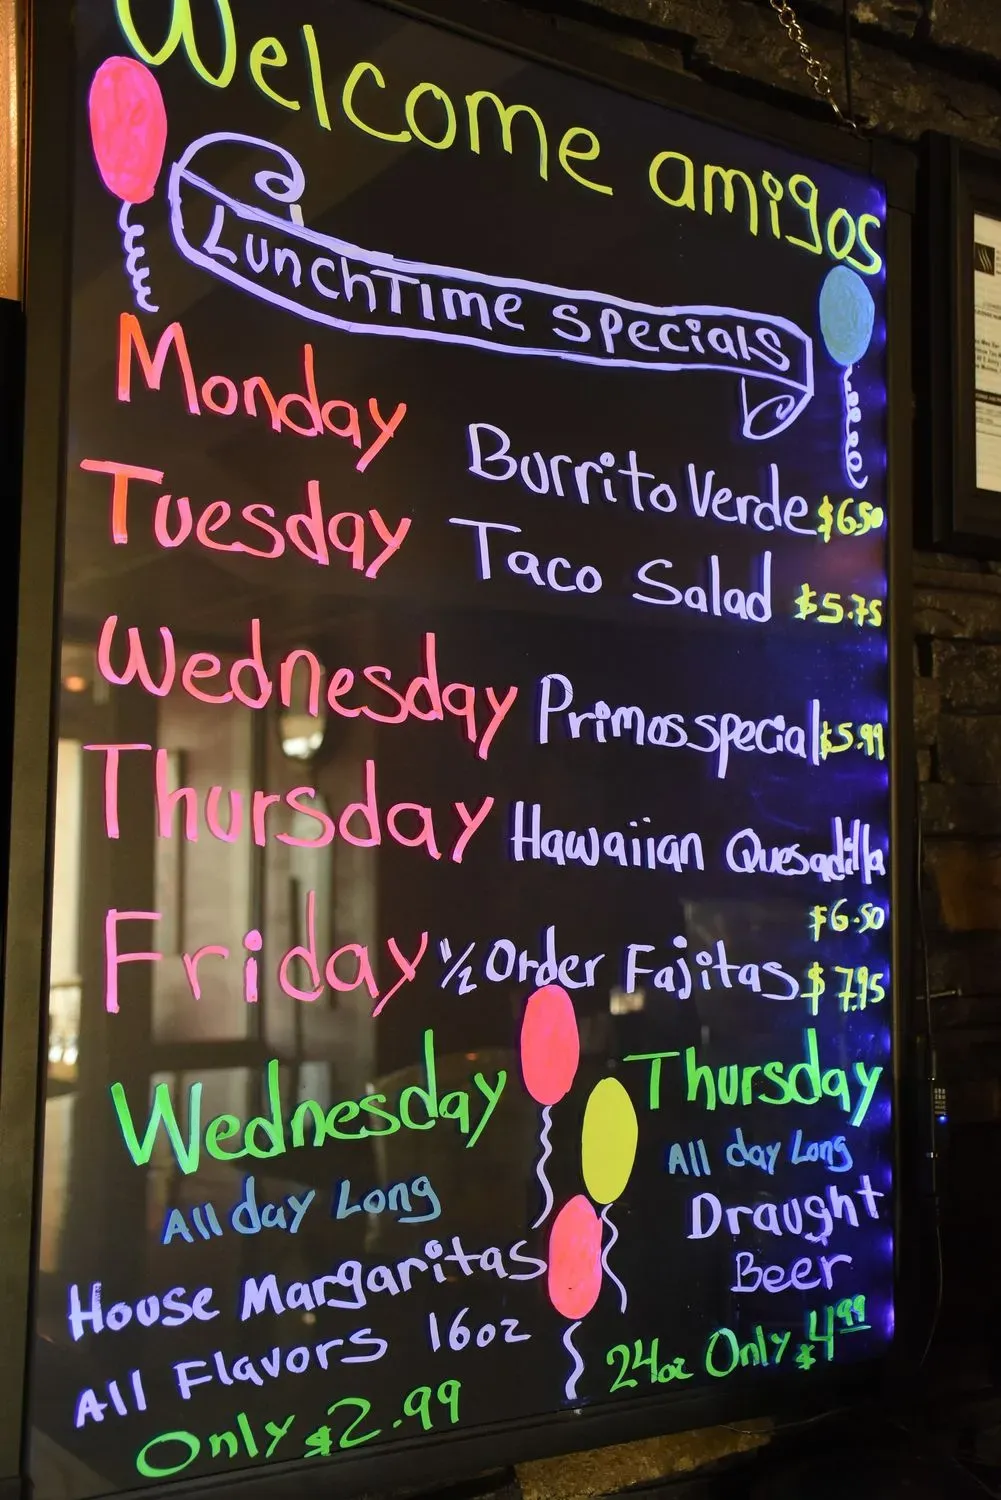 Welcome amigos
LunchTime specials
Monday Burrito Verde $6.50
Tuesday Taco Salad $5.75
Wednesday Primos special $5.99
Thursday Hawaiian Quesadilla
$6.50
Friday ½ Order Fajitas $7.95
Wednesday
All day Long
House Margaritas
All Flavors 16oz
Only $2.99
Thursday
All day Long
Draught
Beer
24oz Only $4.99